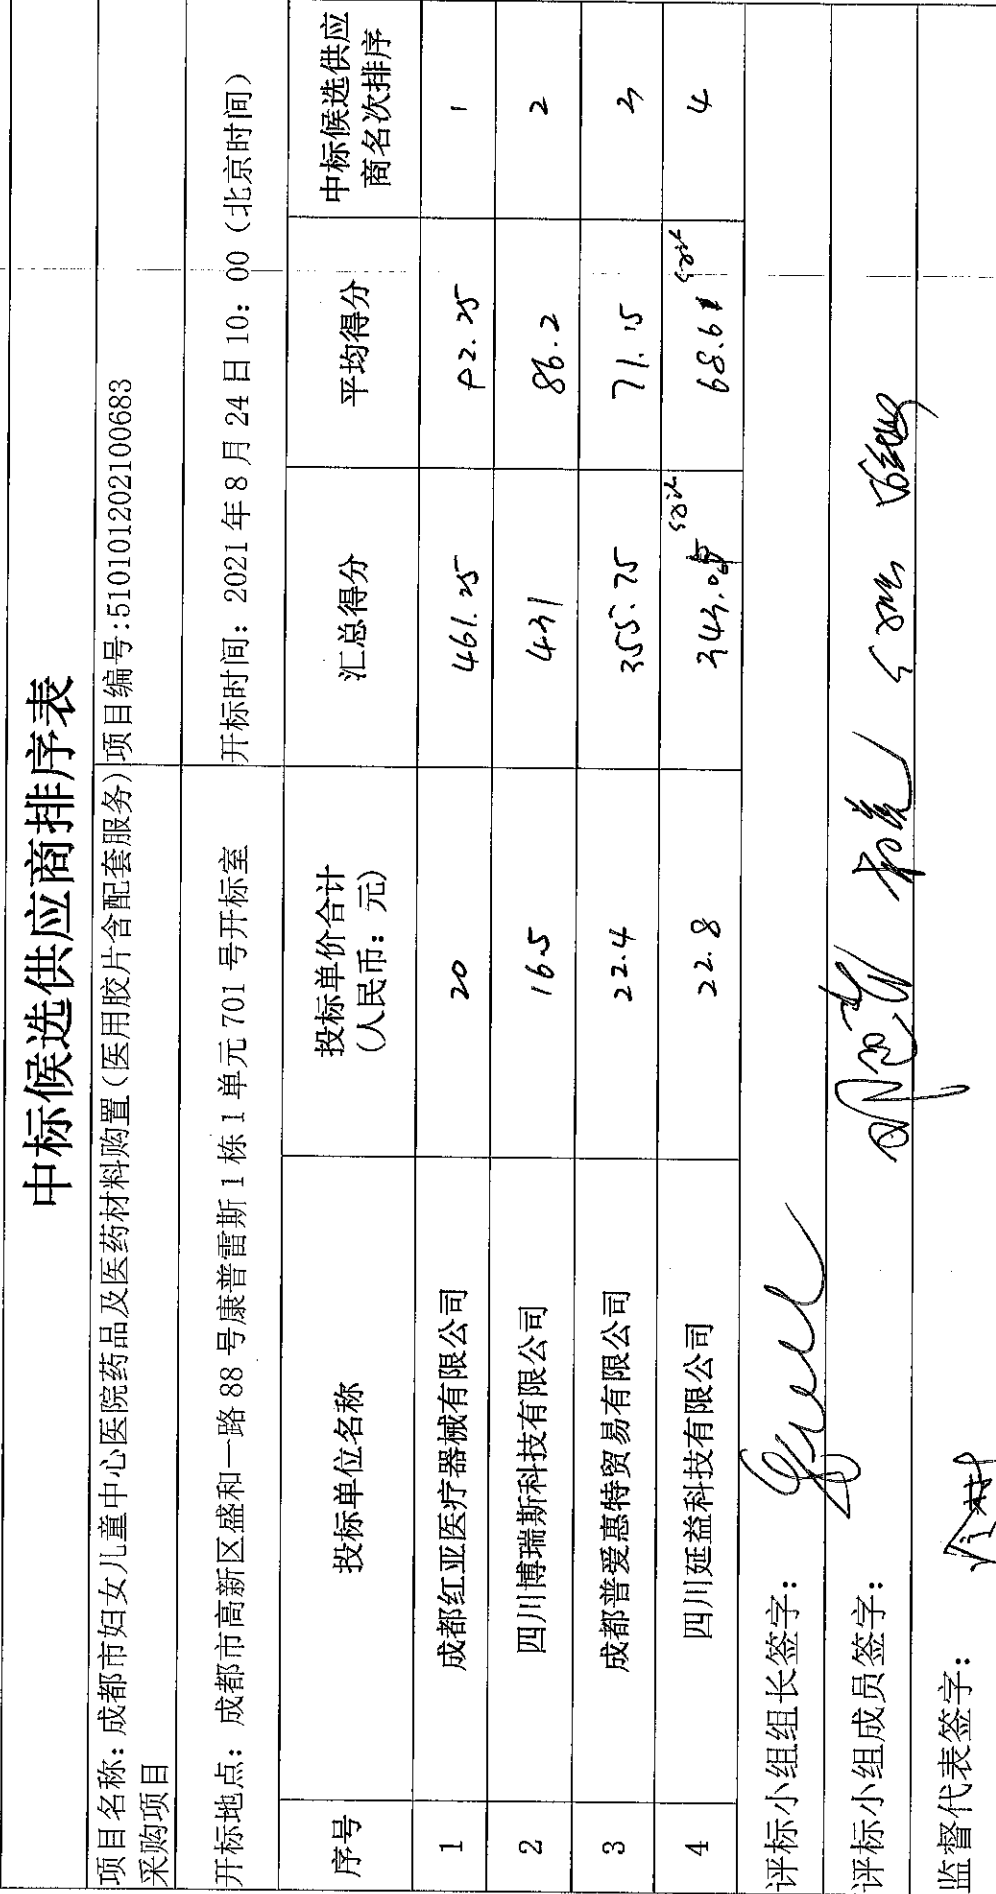 中标候选供应商排序表
项目名称：成都市妇女儿童中心医院药品及医药材料购置（医用胶片含配套服务）采购项目
项目编号:510101202100683
开标地点：成都市高新区盛和一路 88 号康普雷斯 1 栋 1 单元 701 号开标室
开标时间：2021 年 8 月 24 日 10：00（北京时间）
序号 投标单位名称 投标单价合计（人民币：元） 汇总得分 平均得分 中标候选供应商名次排序
1 成都红亚医疗器械有限公司 20 461.25 92.25 1
2 四川博瑞斯科技有限公司 16.5 431 86.2 2
3 成都普爱惠特贸易有限公司 22.4 355.75 71.15 3
4 四川延益科技有限公司 22.8 343.05 68.61 4
评标小组组长签字：
评标小组成员签字：
监督代表签字：